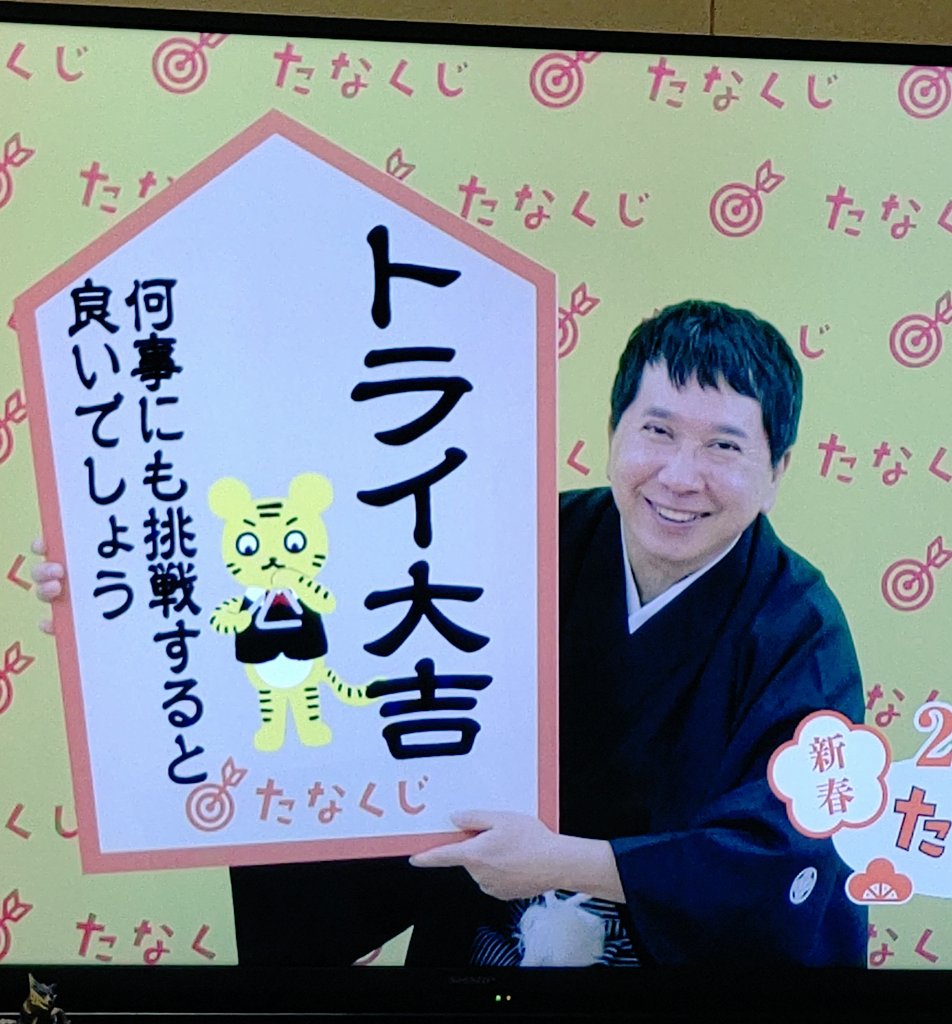 くじ
たなくじ
たなくじ
たな
たなくじ
たなく
トライ大吉
何事にも挑戦すると
良いでしょう
たなくじ
じ
く
たなく
く
なく
新春
2
た
くじ
たなく
なく